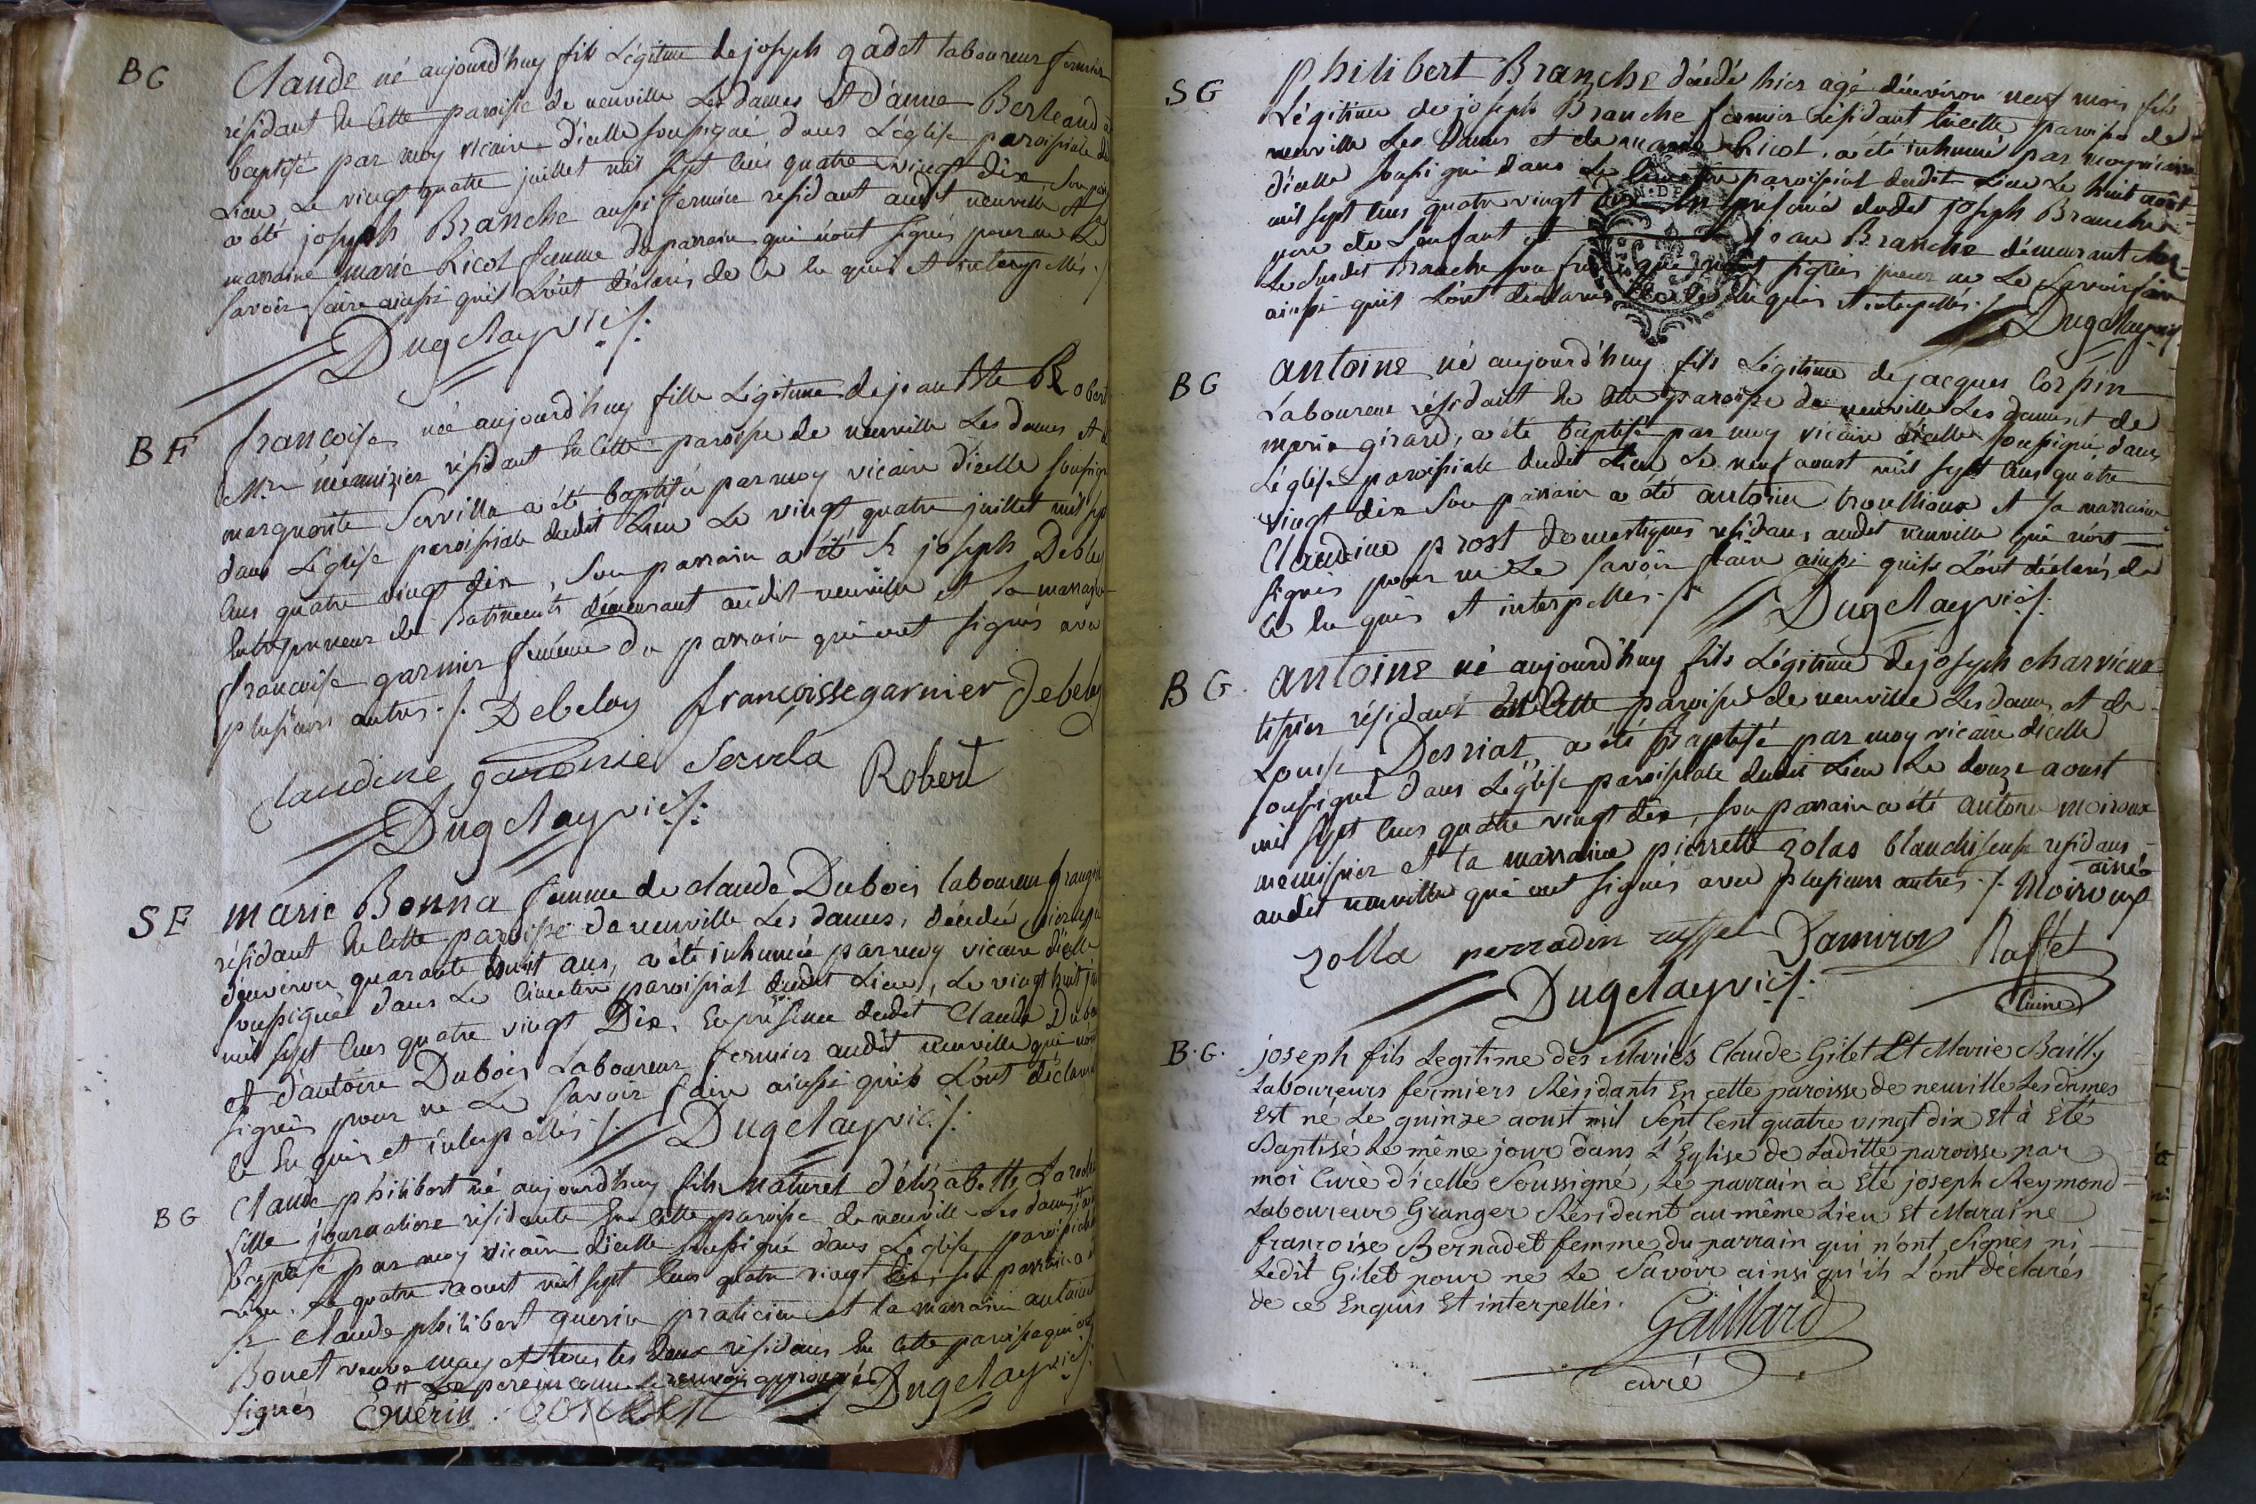 BG
Claude né aujourd'huy fils Légitime de joseph gadet laboureur fermier
résidant En Cette paroisse de neuville Les dames et d'anne Berleand a
baptisé par moy vicaire d'icelle soussigné dans L'église paroissiale du
Lieu Le vingt quatre juillet mil sept Cens quatre vingt dix Son
a été joseph Branche aussi fermier résidant audit neuville et
marraine marie Licol femme du parrain qui n'ont signés pour ne Le
savoir faire ainsi quils L'ont déclarés de Ce En quis et interpellés ./.
Dugelay vic./.
BF
françoise née aujourd'huy fille Légitime de jean Bte Robert
Mtre menuizier résidant En Cette paroisse de neuville Les dames et
marguerite Servilla a été baptisée par moy vicaire d'icelle soussigné
dans L'église paroissiale dudit Lieu Le vingt quatre juillet mil sept
Cens quatre vingt dix, Son parrain a été Sr joseph Debelay
Entrepreneur de Batiments demeurant audit neuville et sa marraine
françoise garnier femme du parrain qui ont signés avec
plusieurs autres ./. Debelay françoisse garnier debelay
Claudine garonie Servela Robert
Dugelay vic./.
SF
marie Bonna femme de claude Dubois laboureur granger
résidant En Cette paroisse de neuville Les dames, décédée hier agée
d'environ quarante huit ans, a été inhumée par moy vicaire d'icelle
soussigné dans Le Cimetière paroissial dudit Lieu, Le vingt huit
mil sept Cens quatre vingt Dix, En présence dudit Claude Dubois
et d'antoine Dubois Laboureur fermier audit neuville qui n'ont
signés pour ne Le savoir faire ainsi quils L'ont déclarés
Ce En quis et interpellés ./. Dugelay vic./.
BG
Claude philibert né aujourd'huy fils naturel d'élizabette
fille journaliere résidante En Cette paroisse de neuville Les dames
baptisé par moy vicaire d'icelle soussigné dans L'église paroissiale
Lieu. Le quatre aoust mil sept Cens quatre vingt dix, son parrain a
Sr Claude philibert guerin praticien et la marraine
Bouet veuve may et tous les deux résidans En Cette paroisse qui ont
signés Le pere inconnu Le renvoy approuvé Dugelay vic./.
Guérin
SG
philibert Branche décédé hier agé d'environ neuf mois fils
Légitime de joseph Branche fermier résidant En cette paroisse de
neuville Les Dames et de marie Licol, a été inhumé par moy vicaire
d'icelle soussigné dans Le Cimetière paroissial dudit Lieu Le huit aout
mil sept Cens quatre vingt dix En présence dudit joseph Branche
pere de L'enfant et jean Branche démeurant chez
Le susdit Branche son frere qui n'ont signés pour ne Le savoir faire
ainsi quils L'ont déclarés de Ce En quis et interpellés ./.
Dugelay vic./.
BG
antoine né aujourd'huy fils Légitime de jacques Corsin
Laboureur résidant En Cette paroisse de neuville Les dames et de
marie girard, a été baptisé par moy vicaire d'icelle soussigné dans
L'église paroissiale dudit Lieu Le neuf aoust mil sept Cens quatre
vingt dix Son parrain a été antoine trouilloux et Sa marraine
Claudine prost domestiques résidans audit neuville qui n'ont
signés pour ne Le savoir faire ainsi quils L'ont déclarés de
Ce En quis et interpellés ./. Dugelay vic./.
BG.
antoine né aujourd'huy fils Légitime de joseph charvieux
tissier résidant En Cette paroisse de neuville Les dames et de
Louise Desriat, a été Baptisé par moy vicaire d'icelle
soussigné dans L'église paroissiale dudit Lieu Le douze aoust
mil sept Cens quatre vingt dix, son parrain a été antoine moiroux
menuisier et la marraine pierrette zolas blanchisseuse résidans
audit neuville qui ont signés avec plusieurs autres ./. Moiroux ainé
zolla perradin Damiron Raffet
Dugelay vic./.
B.G.
joseph fils Legitime des Mariés Claude Gilet Et Marie Bailly
Laboureurs fermiers Résidants En cette paroisse de neuville Les dames
Est né Le quinze aoust mil Sept Cent quatre vingt dix Et à Eté
Baptisé Le même jour dans L'Eglise de Laditte paroisse par
moi Curé d'icelle Soussigné, Le parrain à Eté joseph Reymond
Laboureur Granger Résidant au même Lieu Et Maraine
françoise Bernadet femme du parrain qui n'ont Signés ni
Ledit Gilet pour ne Le Savoir ainsi qu'ils L'ont déclarés
de ce Enquis Et interpellés.
Gaillard
curé